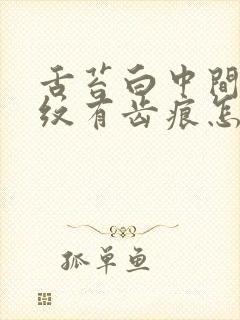 舌苔白中間
纹有齿痕怎
孤单鱼